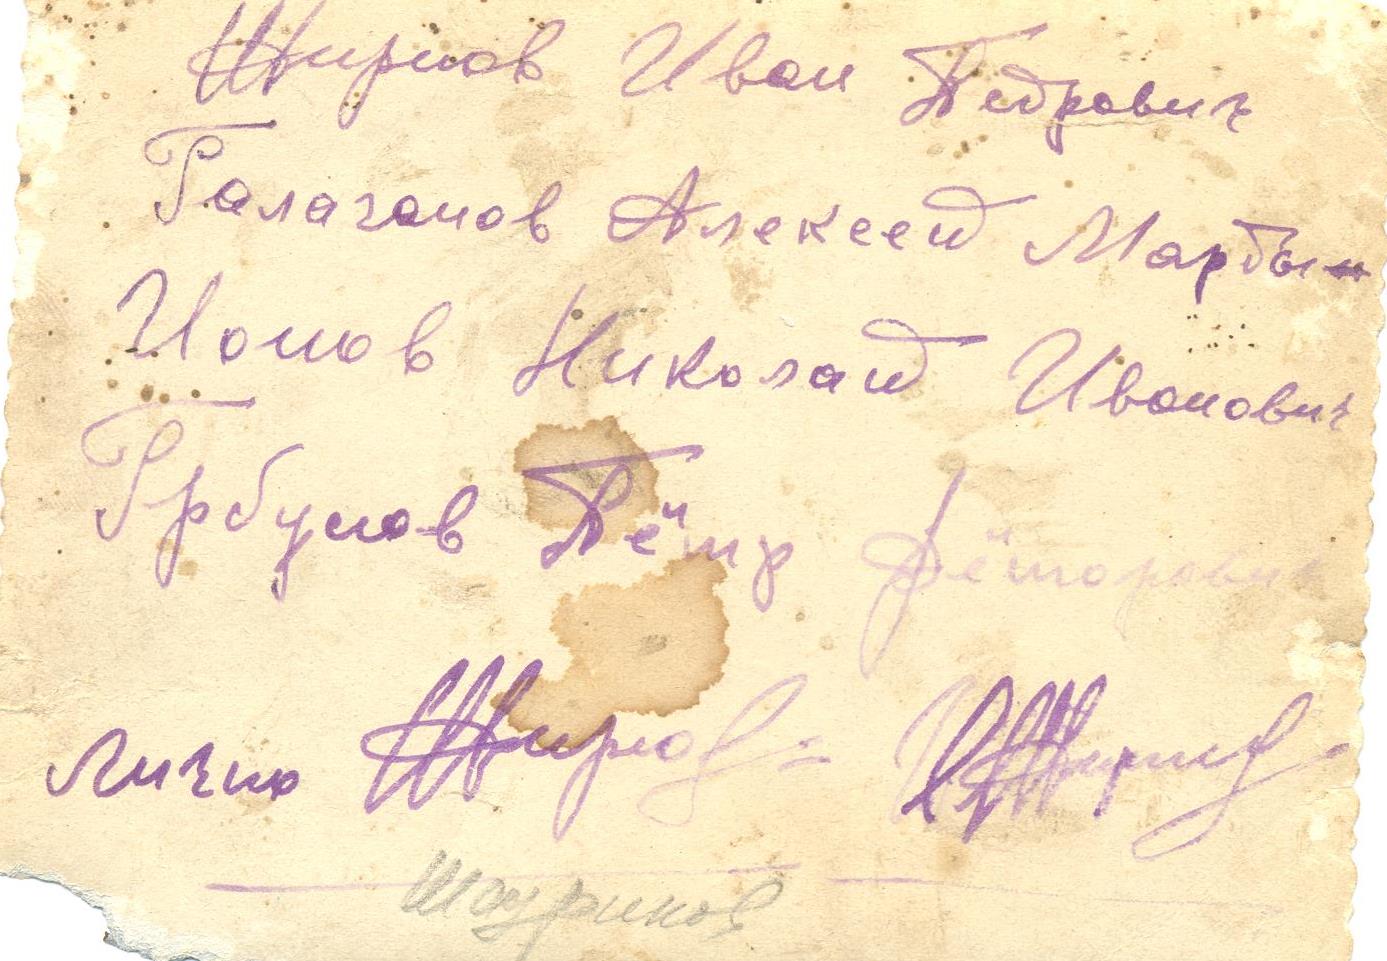 Жирнов Иван Педрович
Галаганов Алексей Марты
Ионов Николай Иванович
Грбунов Пётр Фёторович
Лично Жирнов= ИПЖирнов-
Шауринов